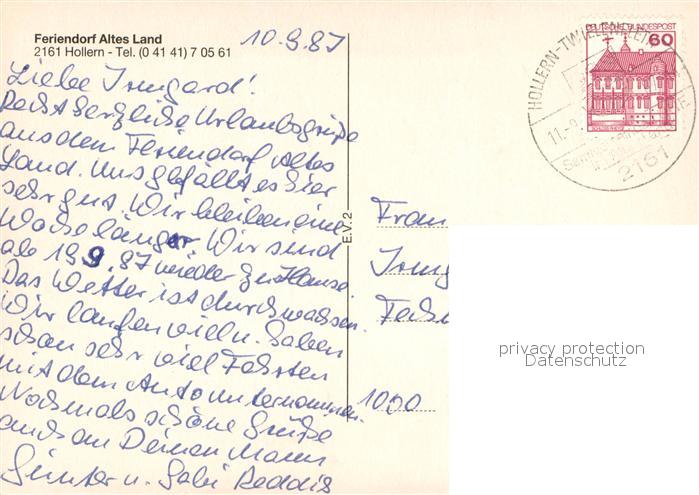 Feriendorf Altes Land
2161 Hollern - Tel. (0 41 41) 7 05 61
10.9.87
Liebe Irmgard!
Recht herzliche Urlaubsgrüße
aus dem Feriendorf Altes
Land. Uns gefällt es hier
sehr gut. Wir bleiben eine
Woche länger. Wir sind
ab 19.9.87 wieder zu Hause.
Das Wetter ist durchwachsen.
Wir laufen viel u. haben
schon sehr viel Fahrten
mit dem Auto unternommen.
Nochmals schöne Grüße
auch an Deinen Mann
Günter u. Gabi Reddis
E.V. 2
DEUTSCHE BUNDESPOST
60
HOLLERN-TWIELENFLETH
11.-9.
2161
Frau
Irmg
1000
privacy protection
Datenschutz